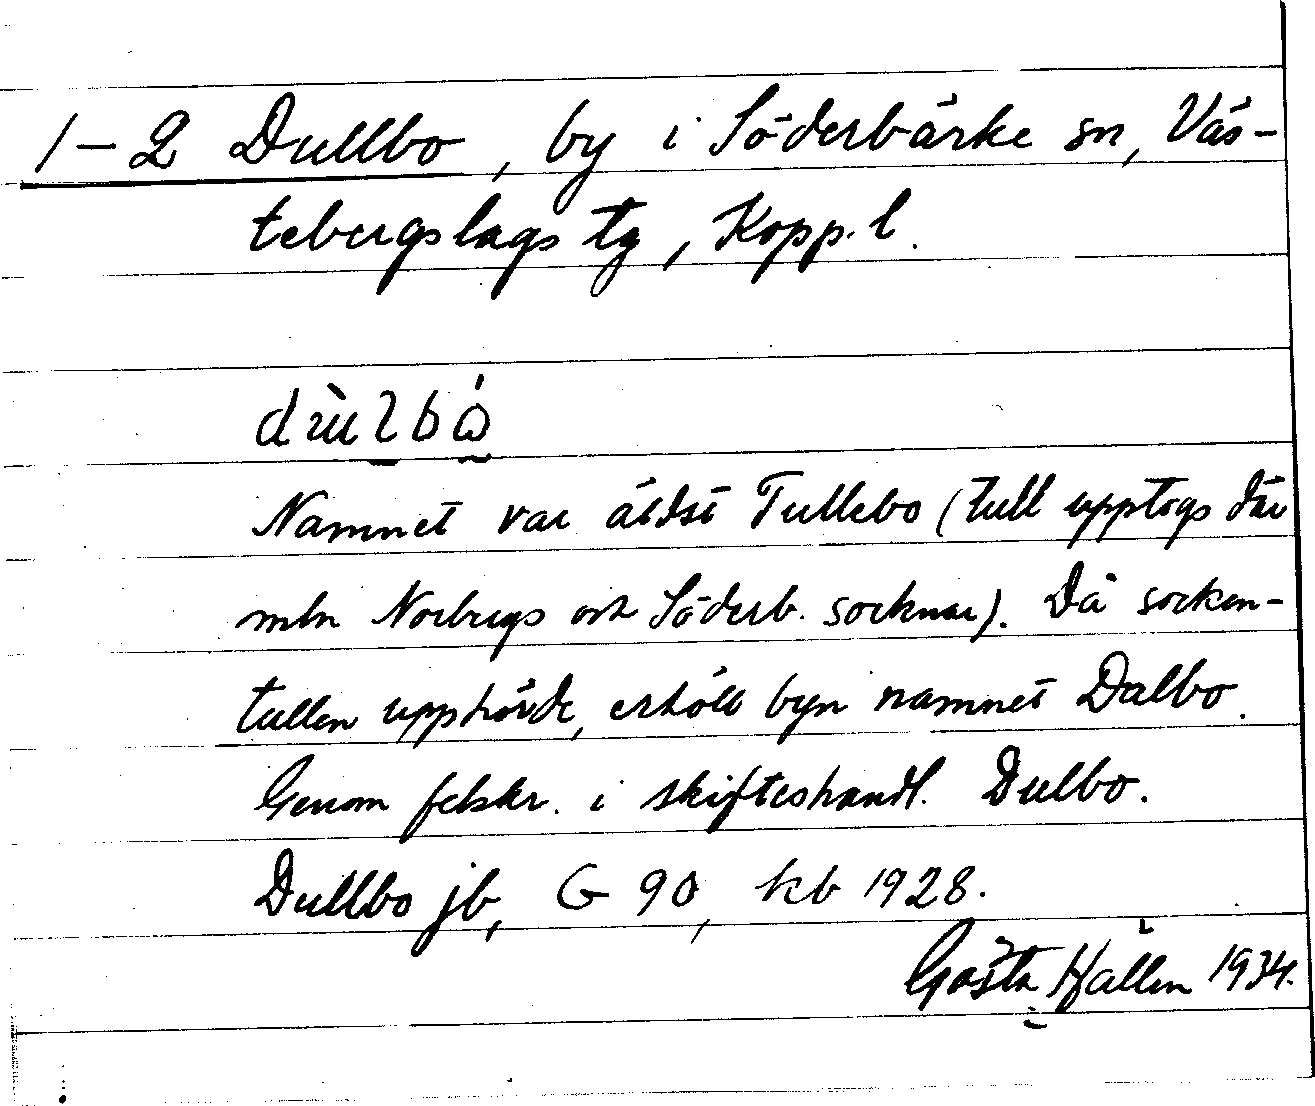 1-2 Dullbo, by i Söderbärke sn, Väs-
tebergslags tg, Kopp. l.
Namnet var äldst Tullebo (tull upptogs där
mln Norbergs och Söderb. socknar). Då socken-
tullen upphörde, erhöll byn namnet Dalbo.
Genom felskr. i skifteshandl. Dulbo.
Dullbo jb, G 90, kb 1928.
Gösta Hallén 1934.